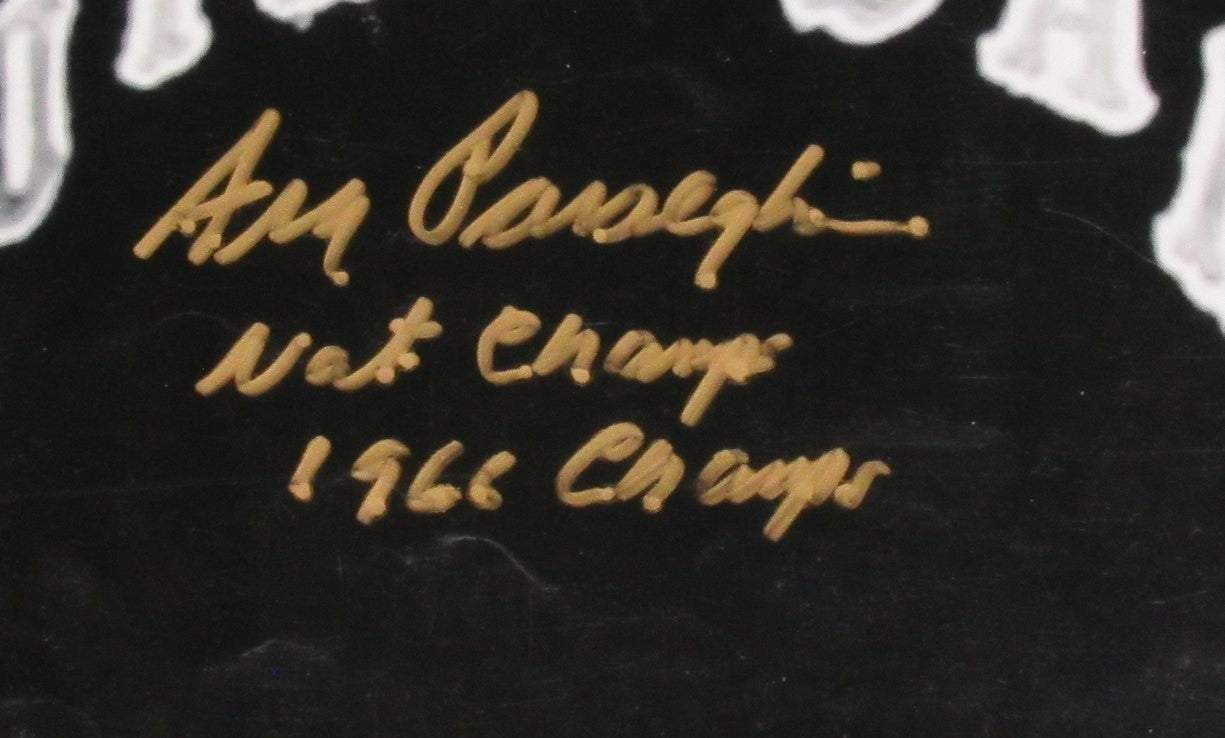 Ara Parseghian
Nat Champs
1966 Champs